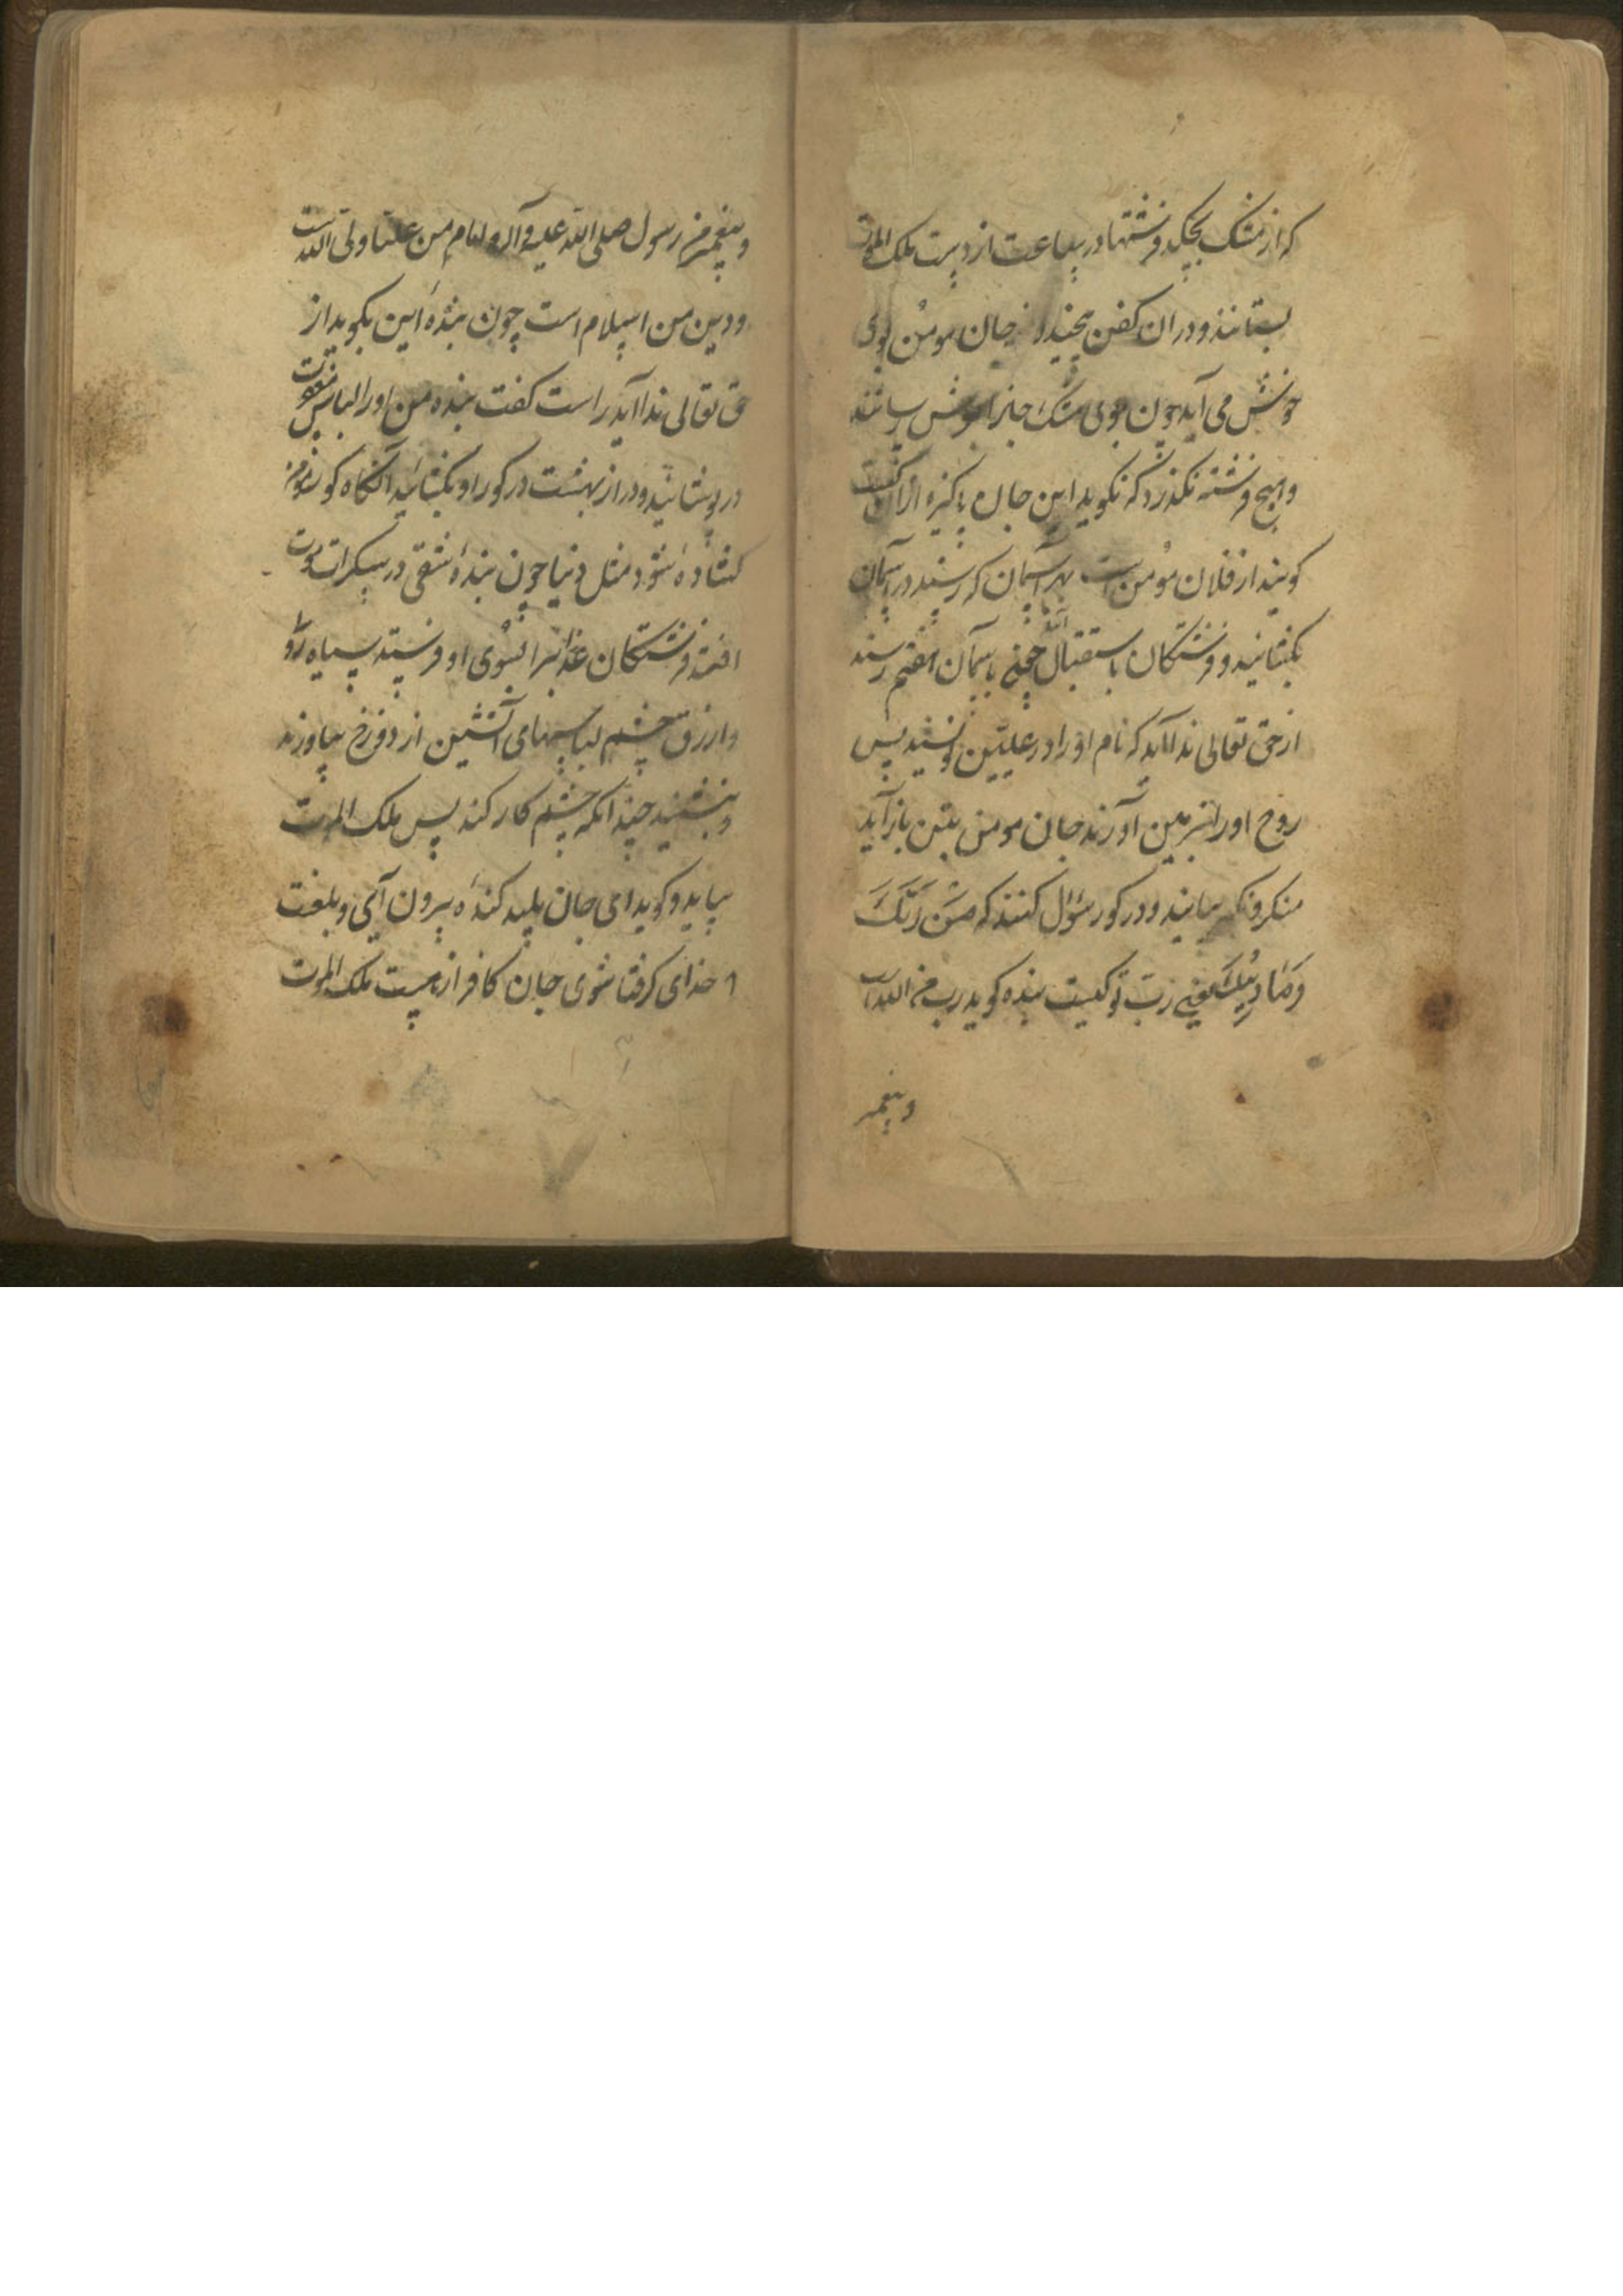 که از مشک بچکد و فرشتها در ساعت از دست ملک الموت
بستانند و دران کفن پیچند و از جان مومن بوی
خوش می آید چون بوی مشک
و هیچ فرشته نگذرد که نگوید این جان پاکیزه ازان کیست
گویند از فلان مؤمن است بهر آسمان که رسند در آسمان
بگشایند و فرشتگان باستقبال باسمان هفتم رسند
از حق تعالی ندا آید که نام او را در علیین نویسید پس
روح او را بزمین آورند جان مومن بتن باز آید
منکر و نکیر بیایند و در کور سؤال کنند که مَن رَبُّکَ
وَمَا دِینُکَ یعنی ربّ تو کیست بنده کوید رب من الله است
و پیغمبر
و پیغمبر من رسول صلی الله علیه و آله و امام من علیا ولی الله است
و دین من اسلام است چون بنده این بکوید از
حق تعالی ندا آید راست کفت بنده من او را لباس
در پوشانید و در از بهشت در کور او بکشائید آنکاه کور
کشاده شود مثل دنیا چون بنده شقی در سکرات موت
افتد فرشتکان عذابرا بسوی او فرستد سیاه رو
و ازرق چشم لباسهای آتشین از دوزخ بیاورند
و بنشینند چندانکه چشم کار کند پس ملک الموت
بیاید و کوید ای جان پلید کنده بیرون آی و بلعنت
خدای کرفتا شوی جان کافر از ملک الموت